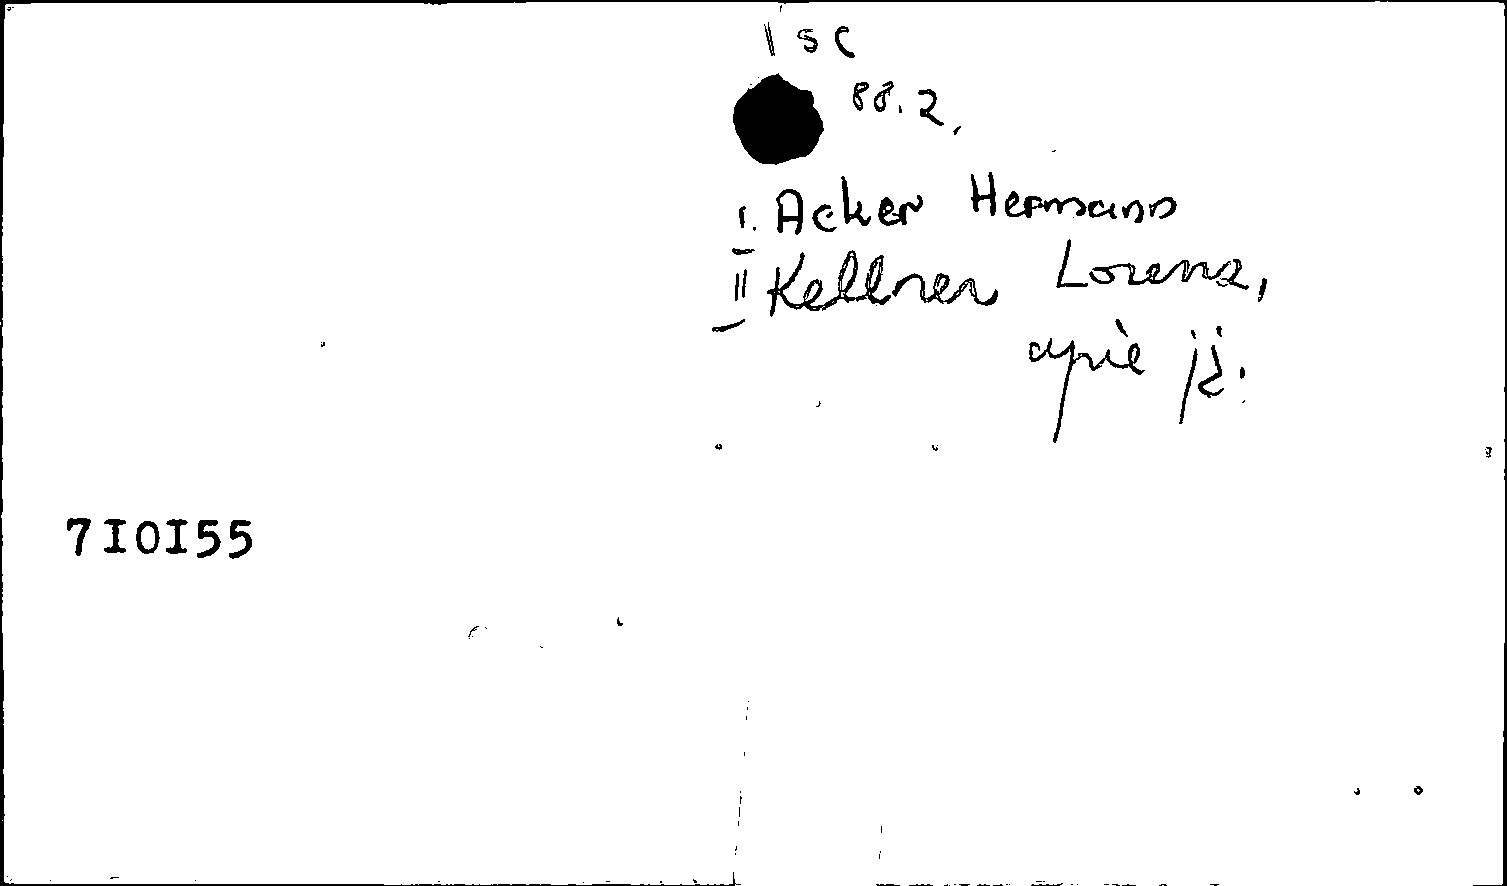 1 sc
88.2.
I. Acker Hermann
II Kellner Lorenz,
apie jį.
7I0I55